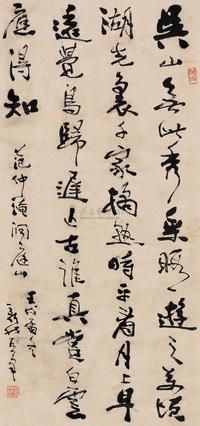 吳山無此秀乘暇一遊之萬頃
湖光裏千家橘熟時平看月上早
遠覺鳥歸遲近古誰真賞白雲
應得知
范仲淹洞庭山
壬戌冬